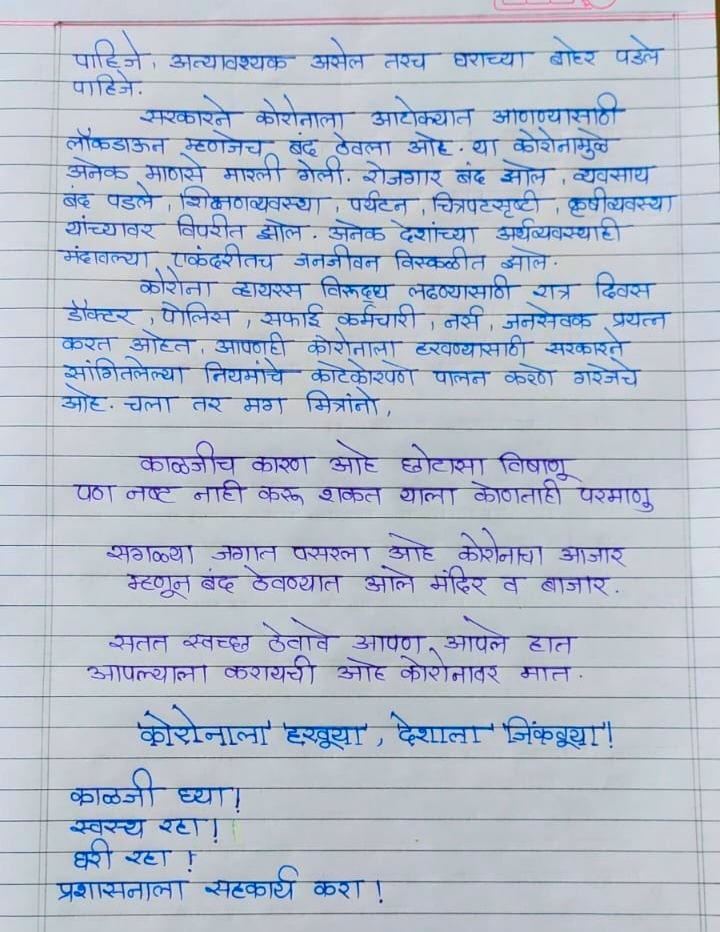 पाहिजे. अत्यावश्यक असेल तरच घराच्या बाहेर पडले
पाहिजे.
सरकारने कोरोनाला आटोक्यात आणण्यासाठी
लॉकडाऊन म्हणजेच बंद ठेवला आहे. या कोरोनामुळे
अनेक माणसे मारली गेली. रोजगार बंद झाले, व्यवसाय
बंद पडले, शिक्षणव्यवस्था, पर्यटन, चित्रपटसृष्टी, कृषीव्यवस्था
यांच्यावर विपरीत झाले. अनेक देशांच्या अर्थव्यवस्थाही
मंदावल्या एकंदरीतच जनजीवन विस्कळीत झाले.
कोरोना व्हायरस विरूद्ध लढण्यासाठी रात्र दिवस
डॉक्टर, पोलिस, सफाई कर्मचारी, नर्स, जनसेवक प्रयत्न
करत आहेत. आपणही कोरोनाला हरवण्यासाठी सरकारने
सांगितलेल्या नियमांचे काटेकोरपणे पालन करणे गरजेचे
आहे. चला तर मग मित्रांनो,
काळजीच कारण आहे छोटासा विषाणू
पण नष्ट नाही करू शकत याला कोणताही परमाणु
सगळ्या जगात पसरला आहे कोरोनाचा आजार
म्हणून बंद ठेवण्यात आले मंदिर व बाजार.
सतत स्वच्छ ठेवावे आपण आपले हात
आपल्याला करायची आहे कोरोनावर मात.
'कोरोनाला' हरवूया, देशाला 'जिंकवूया'!
काळजी घ्या!
स्वस्थ रहा!
घरी रहा!
प्रशासनाला सहकार्य करा!